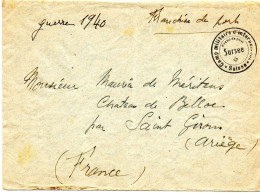 guerre 1940 Franchise de port
Camp militaire d'inter
Sursee
Suisse
Monsieur Maurice de Méritens
Chateau de Belloc
par Saint Girons
(Ariège)
(France)